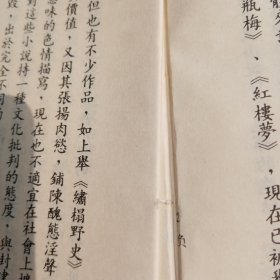 瓶梅》、《紅樓夢》，現在已被
但也有不少作品，如上舉《繡榻野史》
價值，又因其張揚肉慾，鋪陳醜態淫聲
意味的色情描寫，現在也不適宜在社會上
對這些小說持一種文化批判的態度，與封建
毀，出於完全不同的